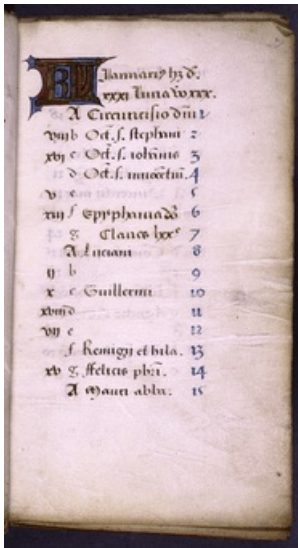 KL Januarius hȝ d.
xxxi luna vo xxx.
A Circuncisio dni 1
viii b Oct. s. stephani 2
xvi c Oct. s. iohānis 3
d Oct. s. innocētiū. 4
v e 5
xiii f Epyphania dn̄i 6
g Claues lxxe 7
A Luciani 8
ii b 9
x c Guillermi 10
xviii d 11
vii e 12
f Remigii et hila. 13
xv g ffelicis pbri. 14
A Mauri abba. 15